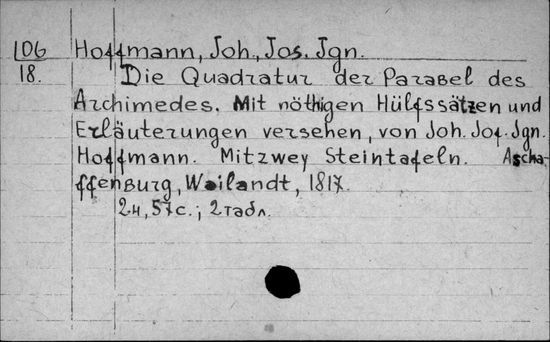 106 Hoffmann, Joh., Jos. Jgn.
18. Die Quadratur der Parabel des
Archimedes. Mit nöthigen Hülfssätzen und
Erläuterungen versehen, von Joh. Jos. Jgn.
Hoffmann. Mit zwey Steintafeln. Ascha-
ffenburg, Wailandt, 1817.
2н, 57с.; 2 табл.